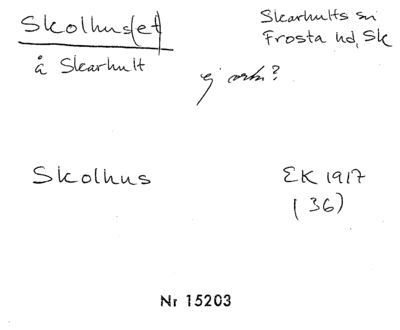 Skolhus(et)
å Skarhult
Skarhults sn
Frosta hd, Sk
ej
Skolhus
EK 1917
(36)
Nr 15203